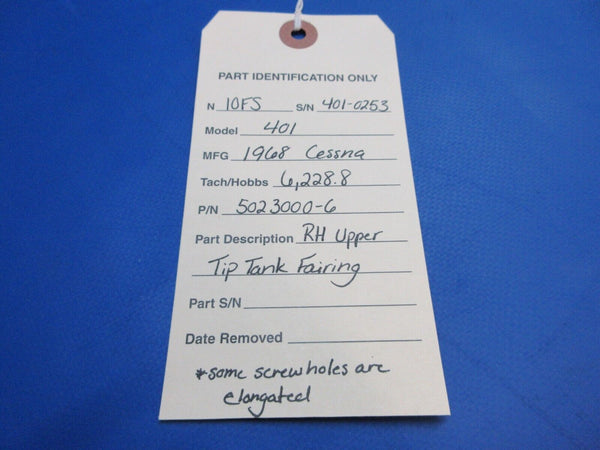 PART IDENTIFICATION ONLY
N 10FS S/N 401-0253
Model 401
MFG 1968 Cessna
Tach/Hobbs 6,228.8
P/N 5023000-6
Part Description RH Upper
Tip Tank Fairing
Part S/N
Date Removed
*some screwholes are
elongated